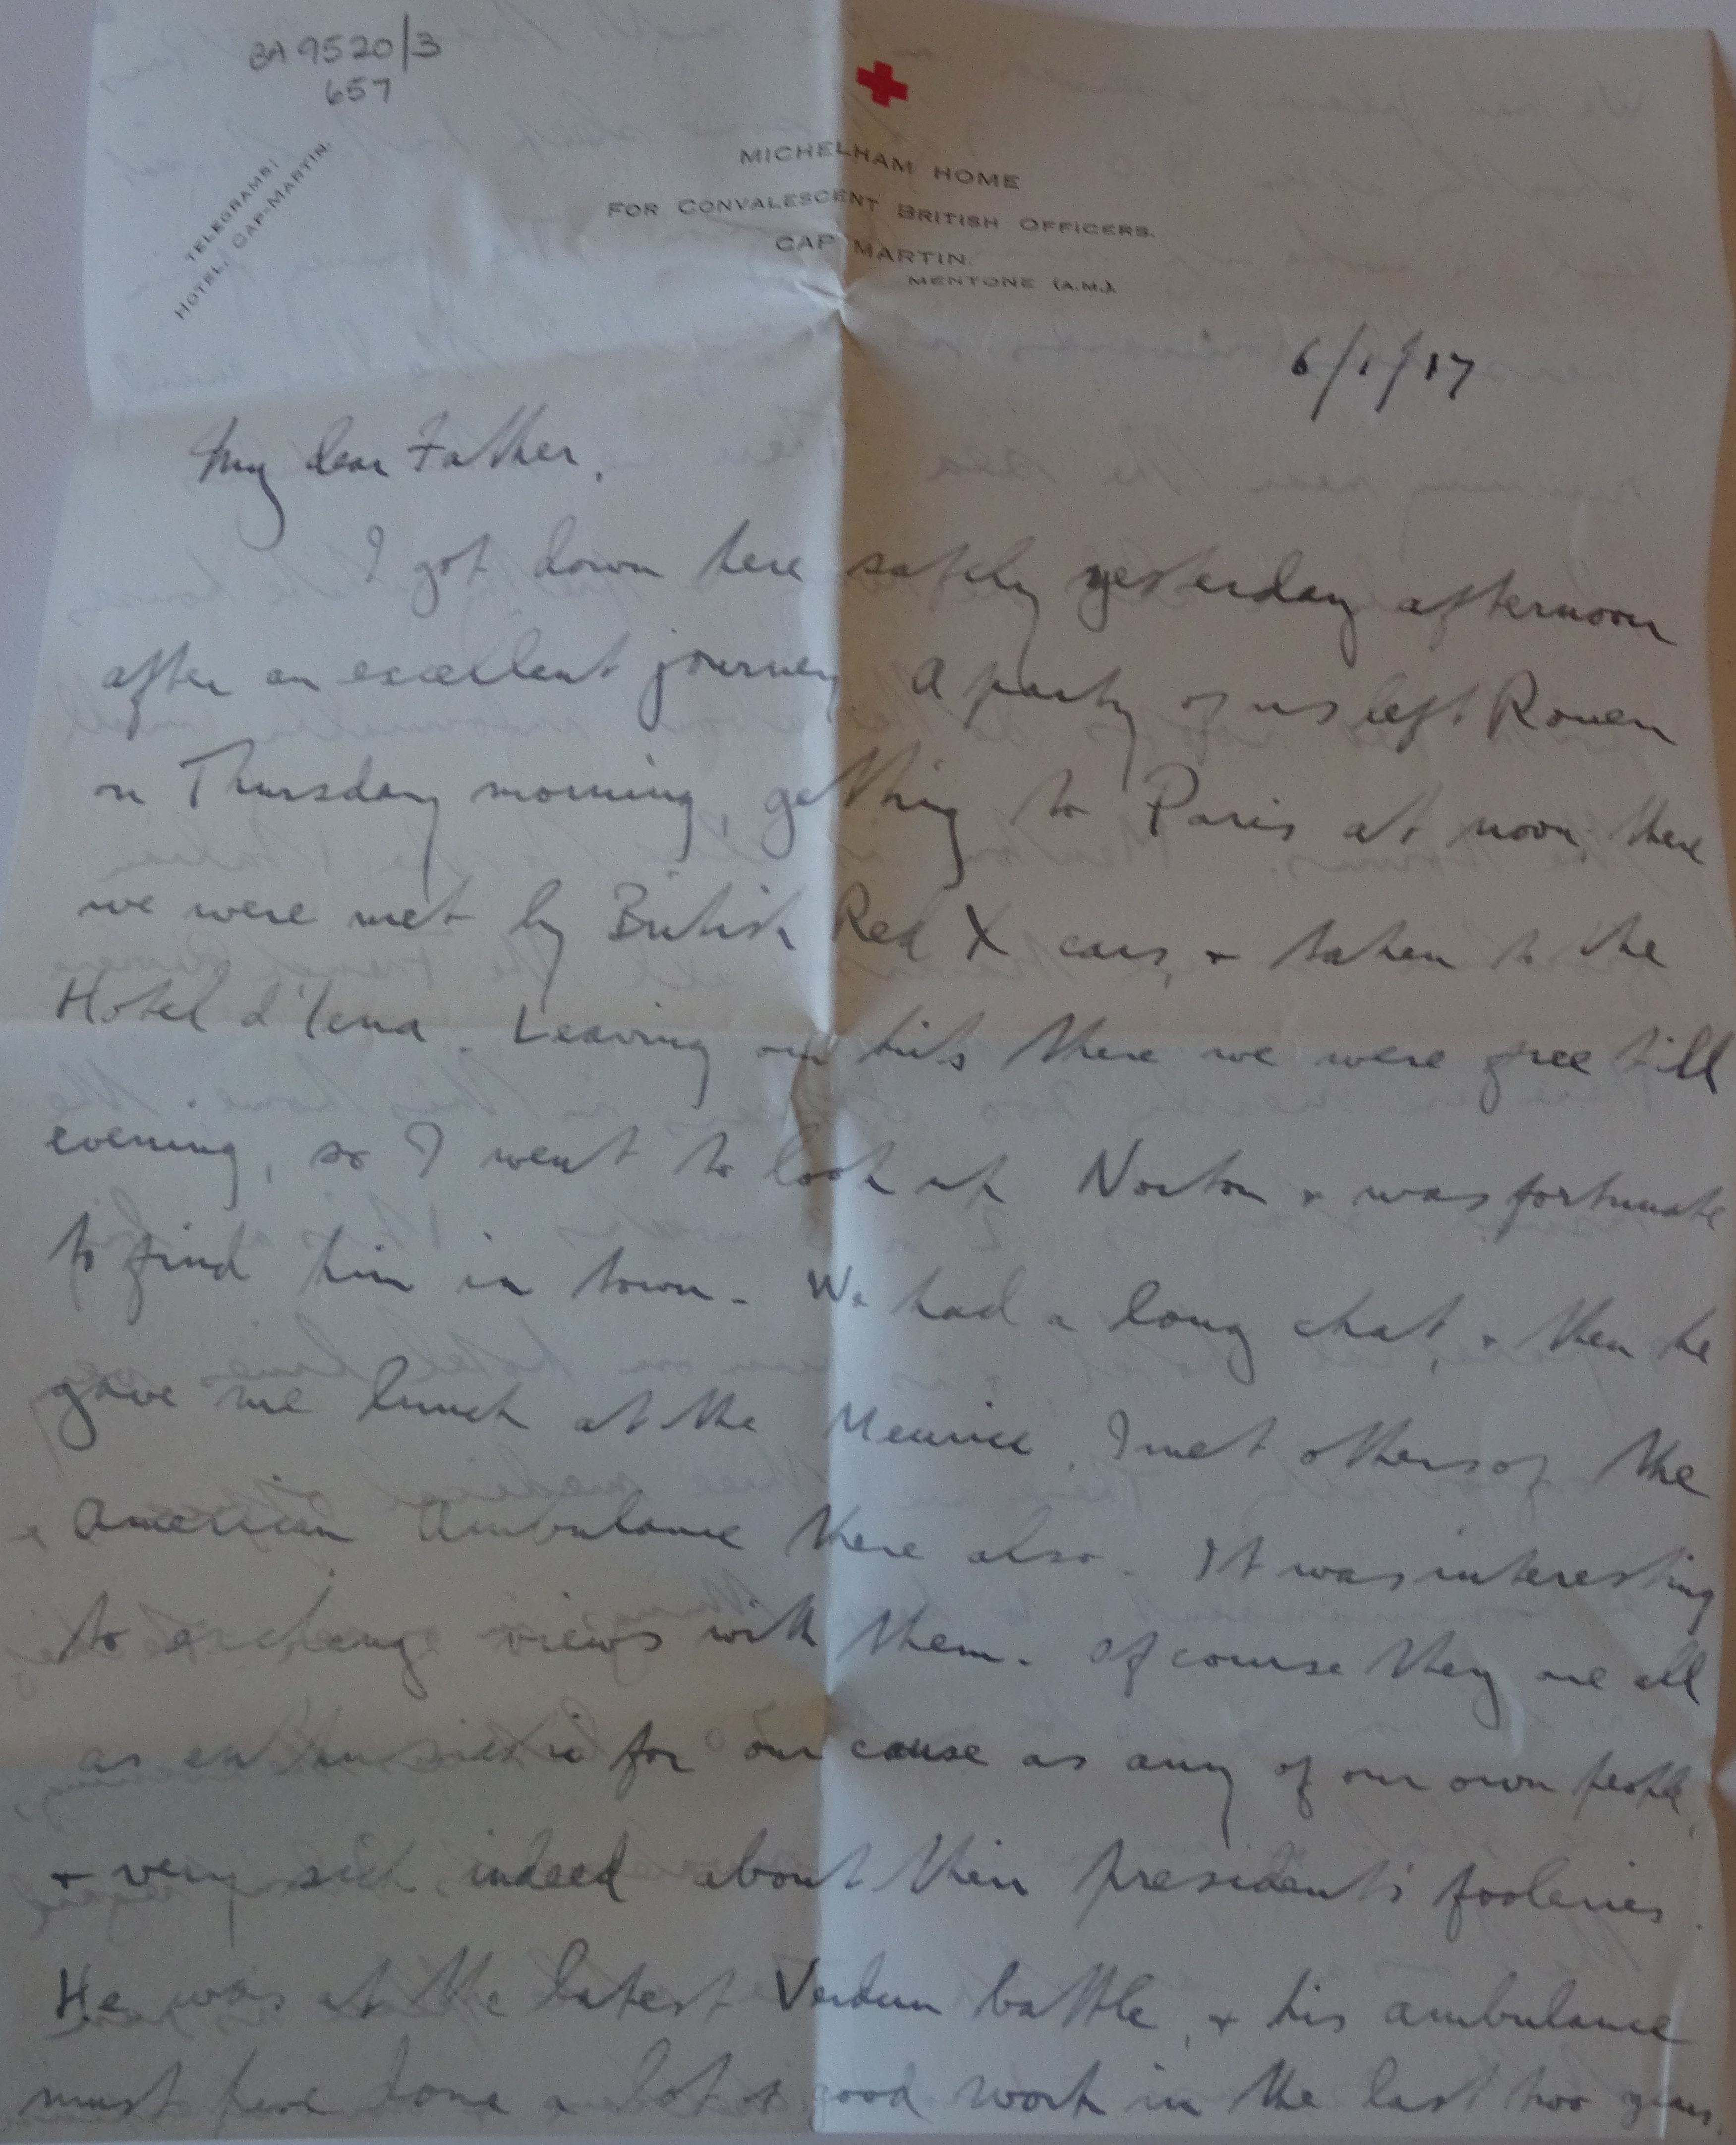 BA 9520/3
657
TELEGRAMS:
HOTEL, CAP-MARTIN.
MICHELHAM HOME
FOR CONVALESCENT BRITISH OFFICERS.
CAP MARTIN.
MENTONE (A.M.).
6/1/17
My dear Father,
I got down here safely yesterday afternoon
after an excellent journey A party of us left Rouen
on Thursday morning, getting to Paris at noon there
we were met by British Red X cars, + taken to the
Hotel d'Iena. Leaving our kits there we were free till
evening, so I went to look up Norton + was fortunate
to find him in town. We had a long chat, + then he
gave me lunch at the Meurice. I met others of the
American Ambulance there also. It was interesting
to exchange views with them. Of course they are all
as enthusiastic for our cause as any of our own people,
+ very sick indeed about their president's fooleries.
He was at the latest Verdun battle, + his ambulance
must have done a lot of good work in the last two years.